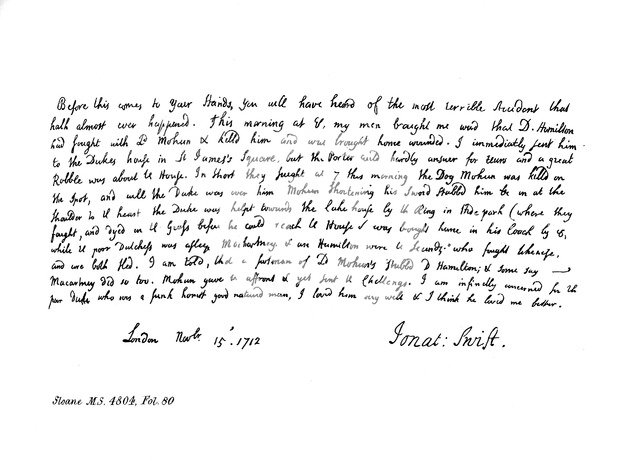 Before this comes to your Hands, you will have heard of the most terrible Accident that
hath almost ever happened. This morning at 8, my man brought me word that D. Hamilton
had fought with Ld Mohun & killd him and was brought home wounded. I immediatly sent him
to the Dukes house in St James's Square, but the Porter could hardly answer for tears and a great
Rabble was about the House. In short they fought at 7 this morning the Dog Mohun was killd on
the spot, and while the Duke was over him Mohun shortening his Sword stabbd him in at the
shoulder to the heart the Duke was helpt towards the Cake house by the Ring in Hide park (where they
fought, and dyed on the Grass before he could reach the House & was brought home in his Coach by 8,
while the poor Dutchess was asleep. Macartney, & one Hamilton were the Seconds who fought likewise,
and are both fled. I am told, that a footman of Ld Mohun's stabbd D Hamilton; & some say
Macartney did so too. Mohun gave the affront & yet sent the Challenge. I am infinitly concerned for the
poor Duke who was a frank honest good natured man, I loved him very well & I think he loved me better.
London Novbr 15. 1712
Jonat: Swift.
Sloane M.S. 4804, Fol. 80